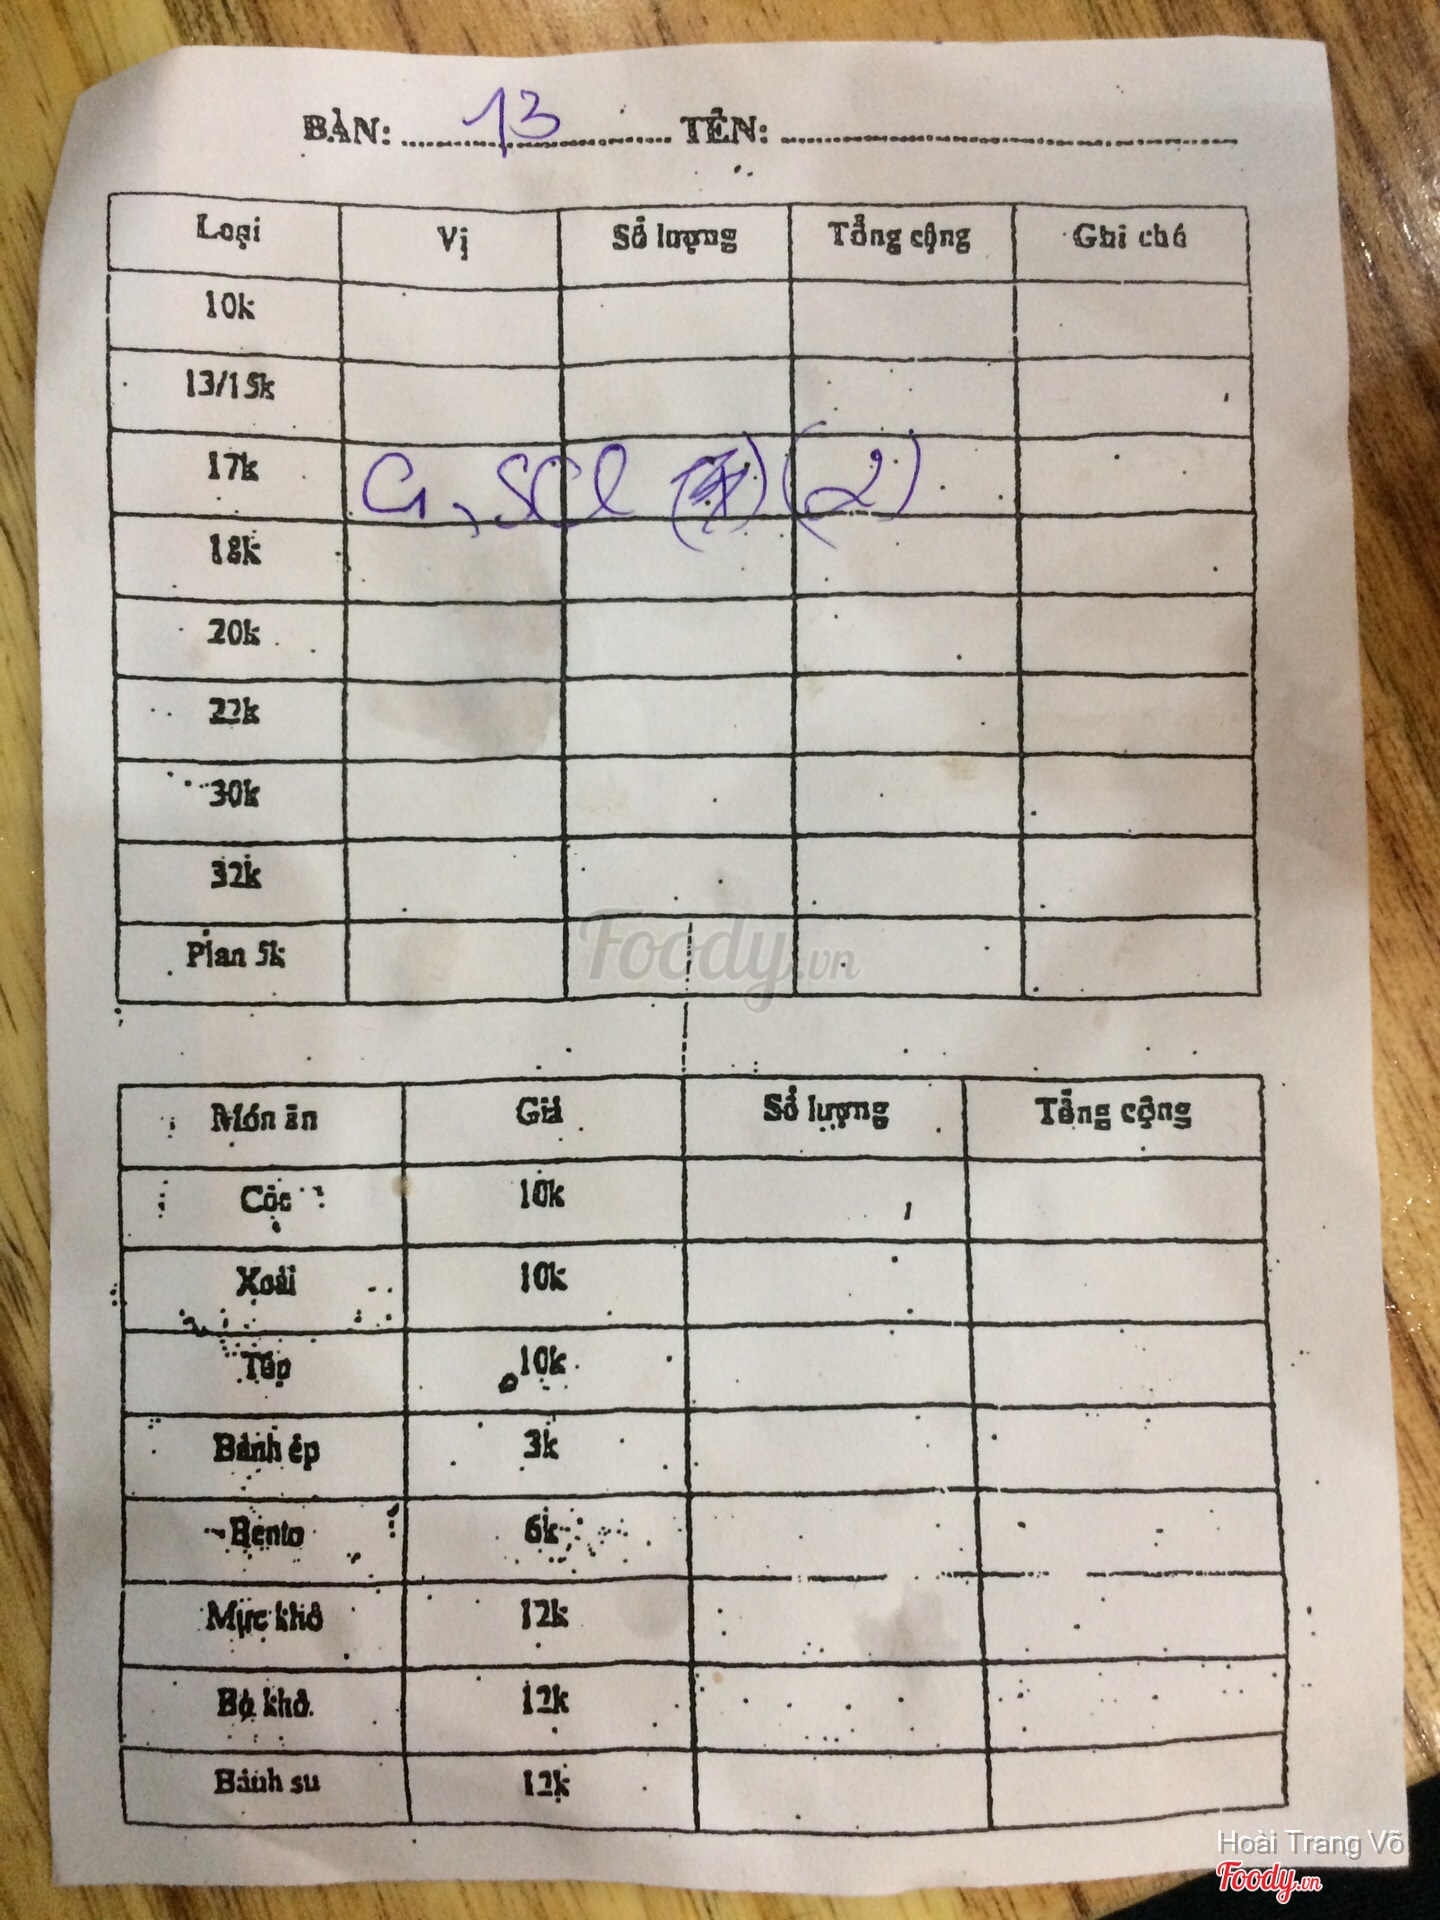 BÀN: 13 TÊN:
Loại Vị Số lượng Tổng cộng Ghi chú
10k
13/15k
17k G, SCl (2)
18k
20k
22k
30k
32k
Flan 5k
Foody.vn
Món ăn Giá Số lượng Tổng cộng
Cóc 10k
Xoài 10k
Tép 10k
Bánh ép 3k
Bento 6k
Mực khô 12k
Bò khô 12k
Bánh su 12k
Hoài Trang Võ
Foody.vn